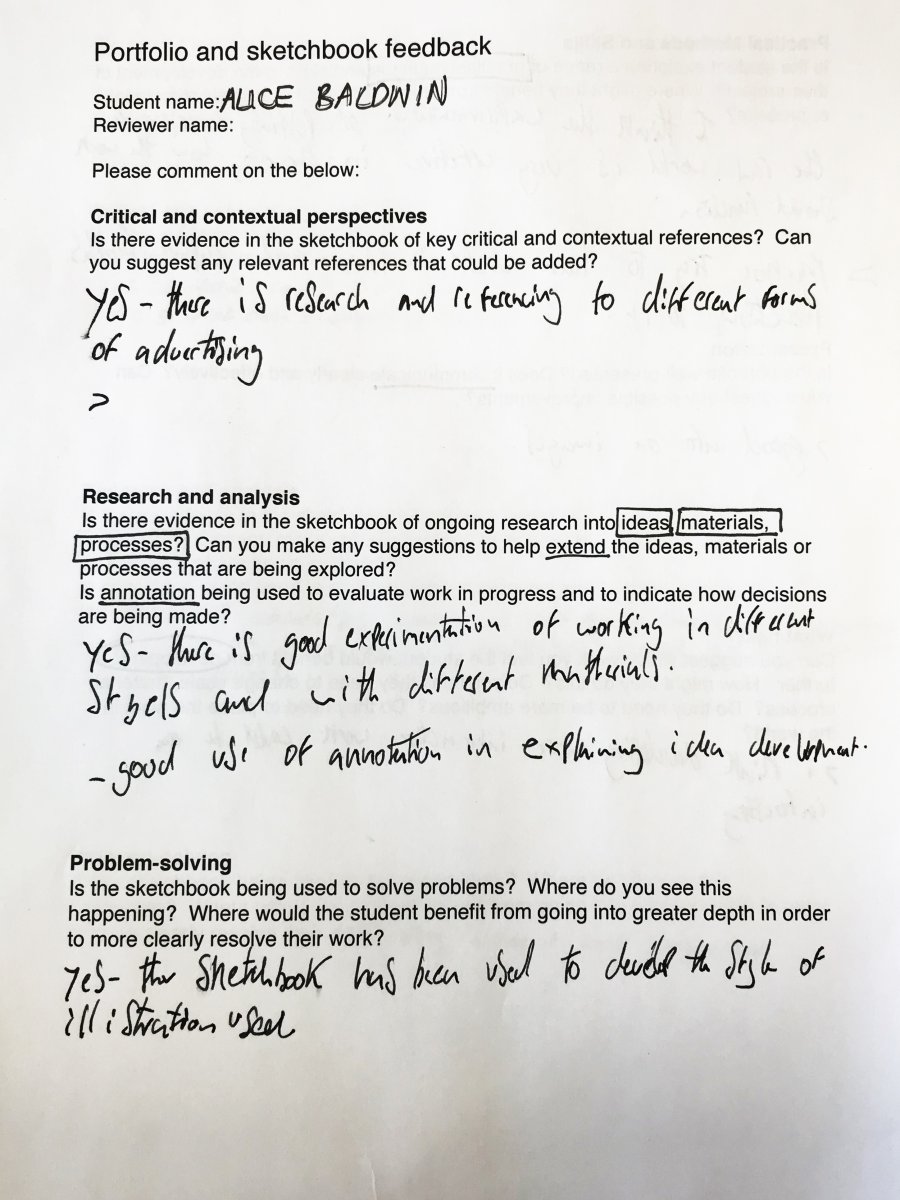 Portfolio and sketchbook feedback
Student name: ALICE BALDWIN
Reviewer name:
Please comment on the below:
Critical and contextual perspectives
Is there evidence in the sketchbook of key critical and contextual references? Can
you suggest any relevant references that could be added?
Yes - there is research and referencing to different forms
of advertising
>
Research and analysis
Is there evidence in the sketchbook of ongoing research into ideas, materials,
processes? Can you make any suggestions to help extend the ideas, materials or
processes that are being explored?
Is annotation being used to evaluate work in progress and to indicate how decisions
are being made?
Yes - there is good experimentation of working in different
Styels and with different matterials.
- good use of annotation in explaining idea development.
Problem-solving
Is the sketchbook being used to solve problems? Where do you see this
happening? Where would the student benefit from going into greater depth in order
to more clearly resolve their work?
Yes - the Sketchbook has been used to the Style of
illistration used